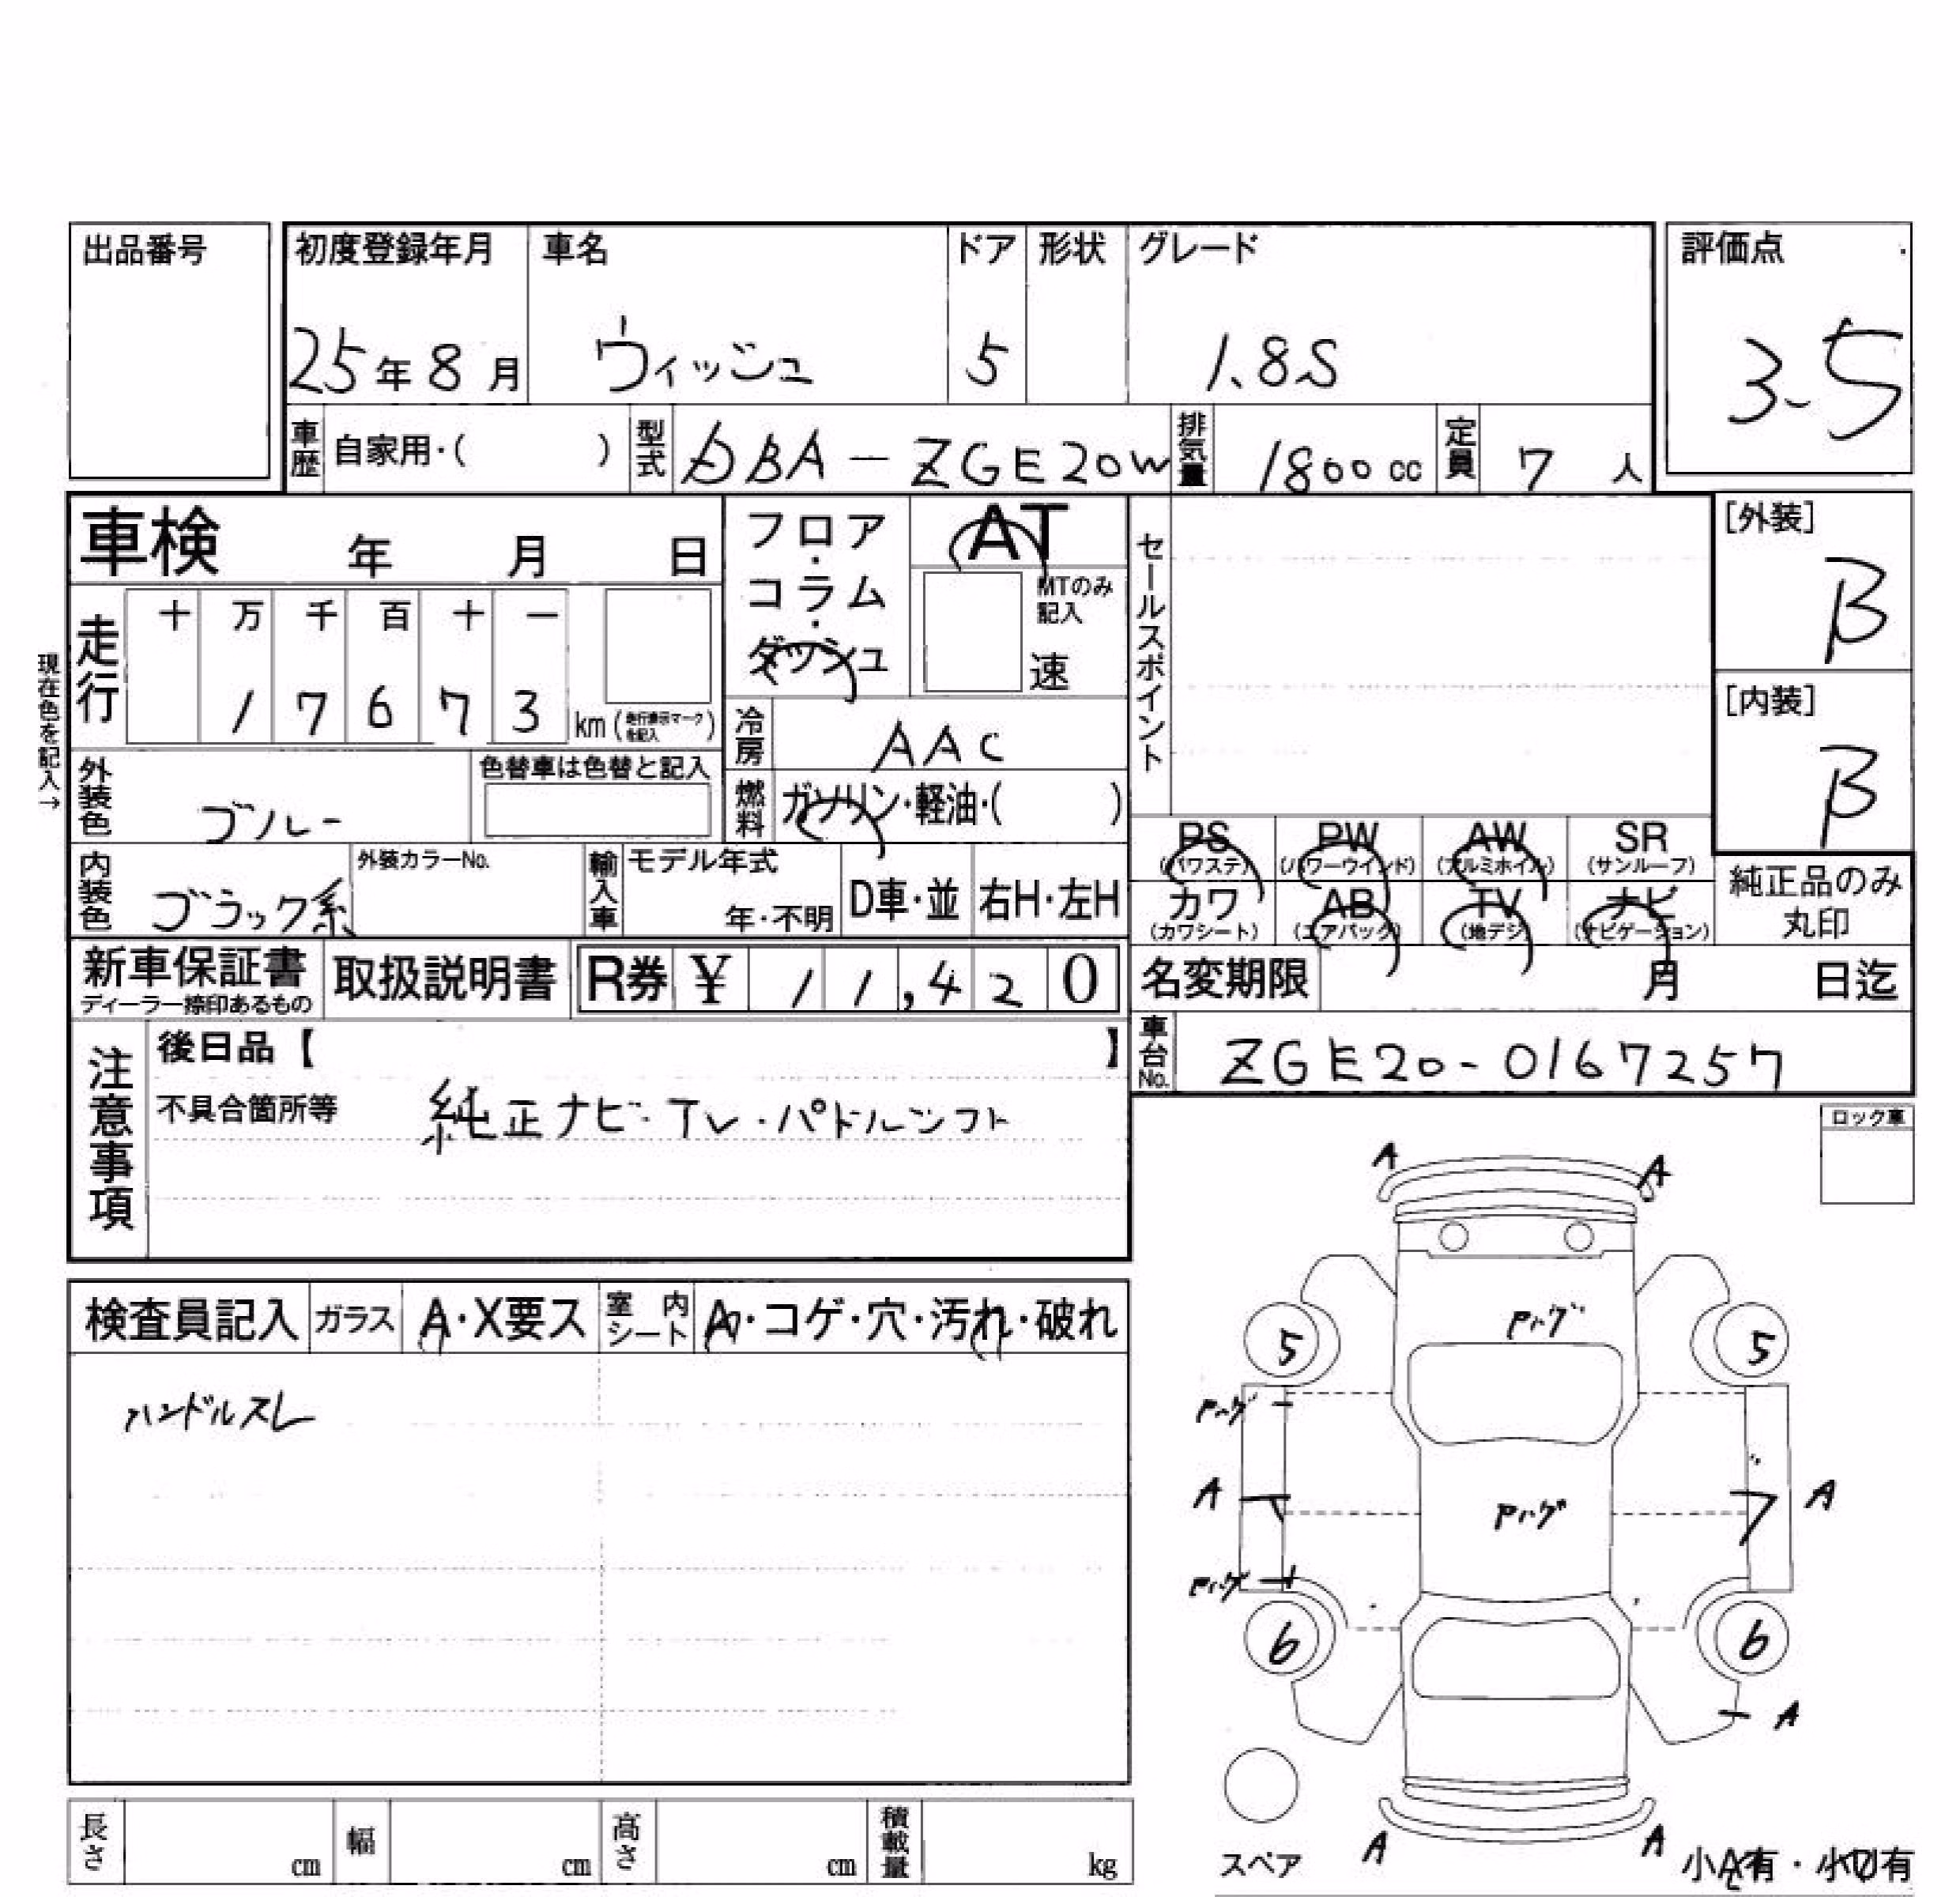 出品番号
初度登録年月 車名 ドア 形状 グレード 評価点
25年8月 ウィッシュ 5 1.8S 3.5
車歴 自家用・( ) 型式 DBA-ZGE20W 排気量 1800cc 定員 7人
車検 年 月 日
フロア・コラム・ダッシュ
AT
MTのみ記入
速
セールスポイント
[外装]
B
[内装]
B
現在色を記入→
走行 十 万 千 百 十 一
1 7 6 7 3 km(走行表示マークを記入)
冷房 AAC
外装色 ブルー 色替車は色替と記入
燃料 ガソリン・軽油・( )
PS PW AW SR
(パワステ) (パワーウインド) (アルミホイル) (サンルーフ)
カワ AB TV ナビ
(カワシート) (エアバック) (地デジ) (ナビゲーション)
純正品のみ
丸印
内装色 ブラック系 外装カラーNo. 輸入車 モデル年式 年・不明 D車・並 右H・左H
新車保証書 取扱説明書 R券 ¥ 11,420
ディーラー捺印あるもの
名変期限 月 日迄
車台No. ZGE20-0167257
注意事項
後日品【 】
不具合箇所等 純正ナビ・TV・パドルシフト
ロック車
検査員記入 ガラス A・X要ス 室内シート A・コゲ・穴・汚れ・破れ
ハンドルスレ
A A
Pハゲ
5 5
Pハゲ
A Pハゲ A
Pハゲ
6 6
A
スペア
A A
小A有・小U有
長さ cm 幅 cm 高さ cm 積載量 kg